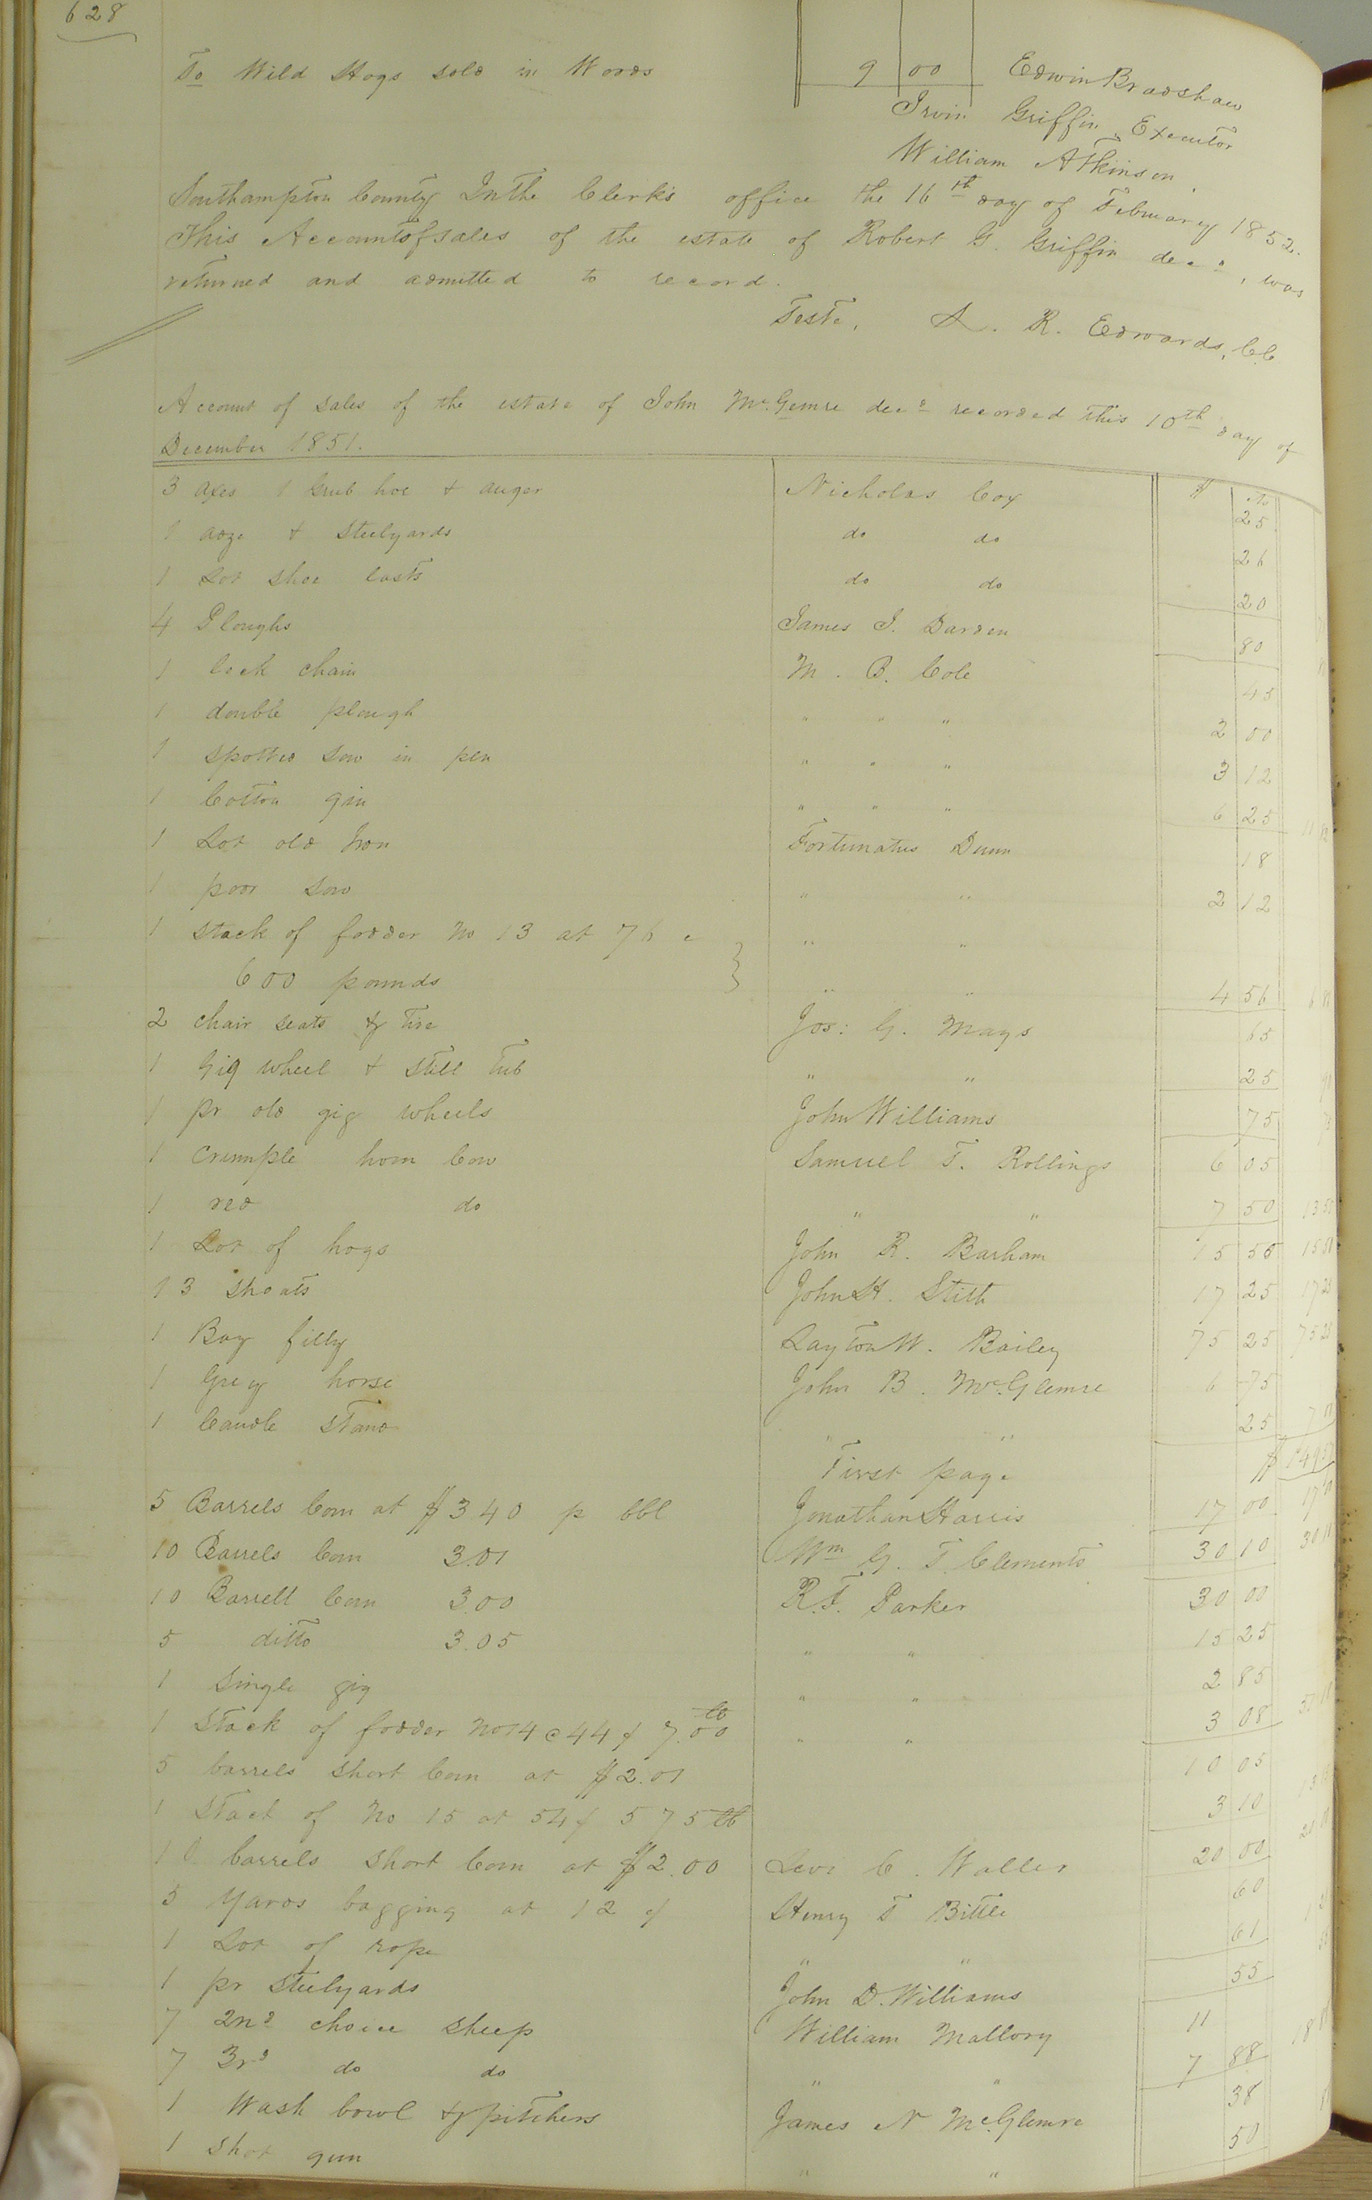 628
To Wild Hogs sold in Woods 9 00 Edwin Bradshaw
Irvin Griffin Executor
William Atkinson.
Southampton County In the Clerk's office the 16th day of February 1852.
This Account of sales of the estate of Robert G. Griffin decd, was
returned and admitted to record.
Teste, L. R. Edwards, C.C.
Account of sales of the estate of John McGemre decd recorded this 10th day of
December 1851.
3 axes & Grub hoe & auger Nicholas Cox $ 25
1 adze & Steelyards do do 26
1 Lot shoe lasts do do 20
4 Ploughs James J. Darden 80
1 lock chain M. B. Cole 45
1 double plough " " " 2 00
1 spotted Sow in pen " " " 3 12
1 Cotton gin " " " 6 25
1 Lot old Iron Fortunatus Dunn 18
1 poor Sow " " 2 12
1 stack of fodder No 13 at 76 c " "
600 pounds " " 4 56
2 chair seats & tire Jos: G. Mays 65
1 Gig wheel & Still Tub " " 25
1 pr old gig wheels John Williams 75
1 Crumple horn Cow Samuel T. Rollings 6 05
1 red do " " 7 50 13 55
1 Lot of hogs John R. Barham 15 55
13 Shoats John H. Stith 17 25 17 25
1 Bay filly Layton W. Bailey 75 25 75 25
1 Grey horse John B. McGlemre 6 75
1 Candle Stand " " 25
First page $
5 Barrels Corn at $3 40 p bbl Jonathan Harris 17 00
10 Barrels Corn 3.01 Wm G. T. Clements 30 10
10 Barrell Corn 3.00 R. T. Parker 30 00
5 ditto 3.05 " " 15 25
1 Single gig " " 2 85
1 Stack of fodder No 14 @ 44¢ 7.00 lb " " 3 08
5 barrels short Corn at $2.01 10 05
1 Stack of No 15 at 54¢ 575 lb 3 10
10 barrels short Corn at $2.00 Levi C. Waller 20 00
5 Yards bagging at 12¢ Henry T Bittle 60
1 Lot of rope " " 61
1 pr Steelyards John D. Williams 55
7 2nd choice sheep William Mallory 11
7 3rd do do " " 7 88
1 Wash bowl & pitchers James N McGlemre 38
1 Shot gun " " 50